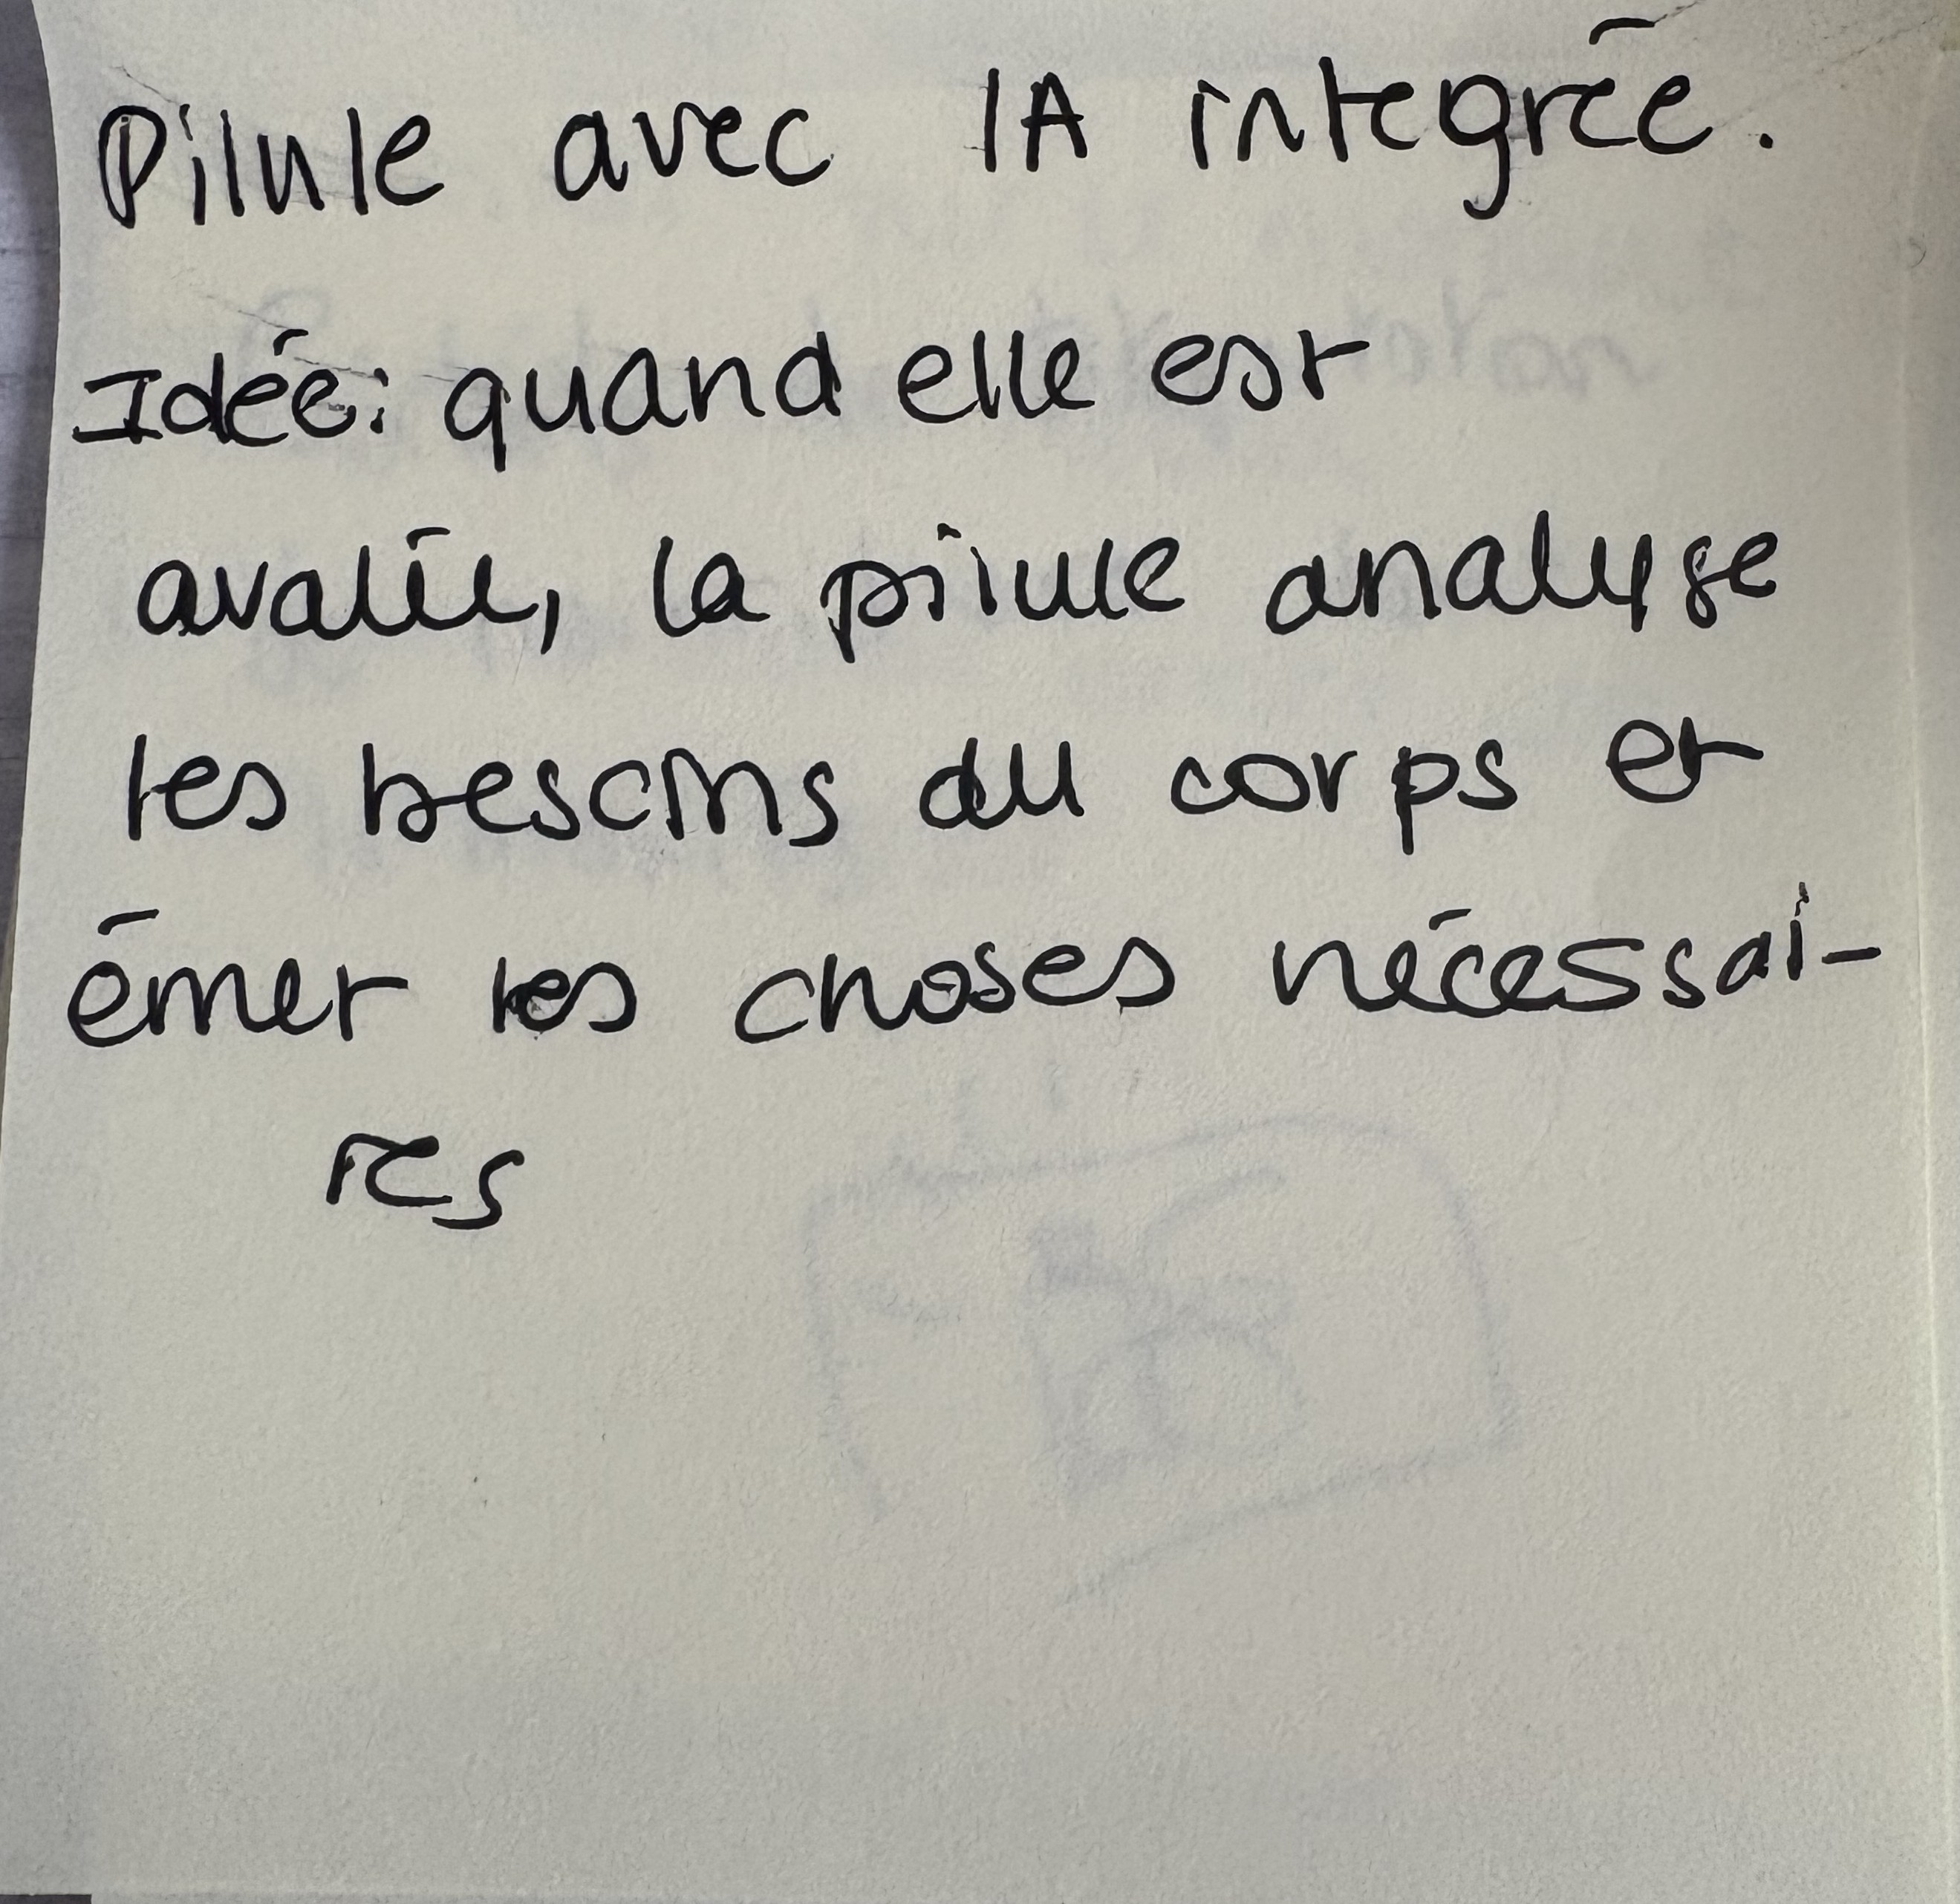 Pilule avec IA integrée.
Idée: quand elle est
avalée, la pilule analyse
les besoins du corps et
émet les choses nécessai-
res